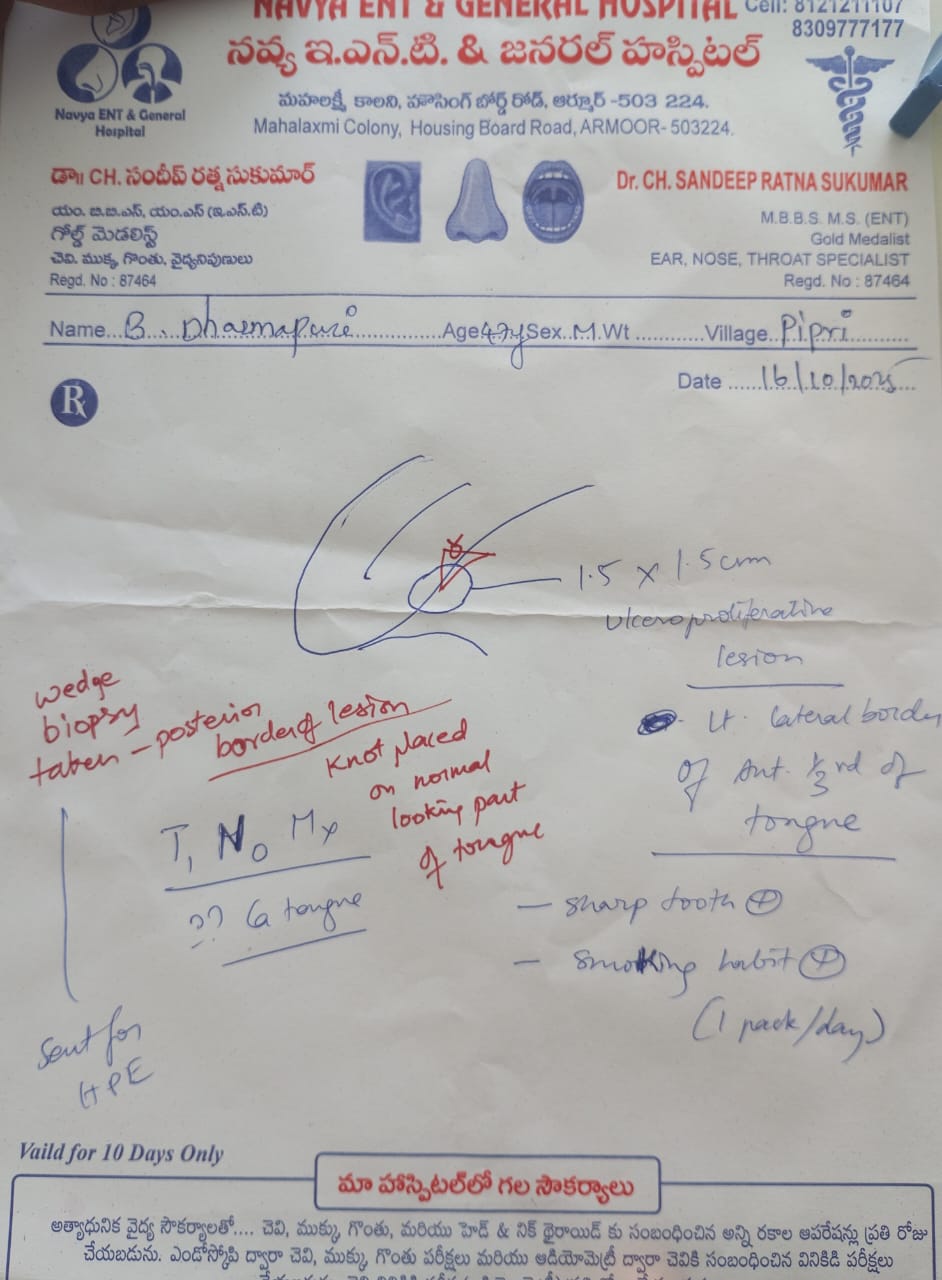 NAVYA ENT & GENERAL HOSPITAL Cell: 8121211107
8309777177
నవ్య ఇ.ఎన్.టి. & జనరల్ హస్పిటల్
Navya ENT & General
Hospital
మహలక్ష్మీ కాలని, హౌసింగ్ బోర్డ్ రోడ్, ఆర్మూర్ -503 224.
Mahalaxmi Colony, Housing Board Road, ARMOOR- 503224.
డా॥ CH. సందీప్ రత్న సుకుమార్
యం. బి.బి.ఎస్, యం.ఎస్ (ఇ.ఎన్.టి)
గోల్డ్ మెడలిస్ట్
చెవి. ముక్కు, గొంతు, వైద్యనిపుణులు
Regd. No : 87464
Dr. CH. SANDEEP RATNA SUKUMAR
M.B.B.S. M.S. (ENT)
Gold Medalist
EAR, NOSE, THROAT SPECIALIST
Regd. No : 87464
Name B. Dharmapuri Age 47y Sex M Wt Village Pipri
Date 16/10/2025
Rx
1.5 x 1.5 cm
ulceroproliferative
lesion
- Lt. lateral border
of Ant. 1/3 rd of
tongue
wedge
biopsy
taken - posterior
border of lesion
Knot placed
on normal
looking part
of tongue
T1 N0 Mx
?? Ca tongue
- sharp tooth ⊕
- smoking habit ⊕
(1 pack/day)
Sent for
HPE
Vaild for 10 Days Only
మా హాస్పిటల్‌లో గల సౌకర్యాలు
అత్యాధునిక వైద్య సౌకర్యాలతో.... చెవి, ముక్కు గొంతు, మరియు హెడ్ & నెక్ థైరాయిడ్ కు సంబంధించిన అన్ని రకాల ఆపరేషన్లు ప్రతి రోజు
చేయబడును. ఎండోస్కోపి ద్వారా చెవి, ముక్కు గొంతు పరీక్షలు మరియు ఆడియోమెట్రీ ద్వారా చెవికి సంబంధించిన వినికిడి పరీక్షలు